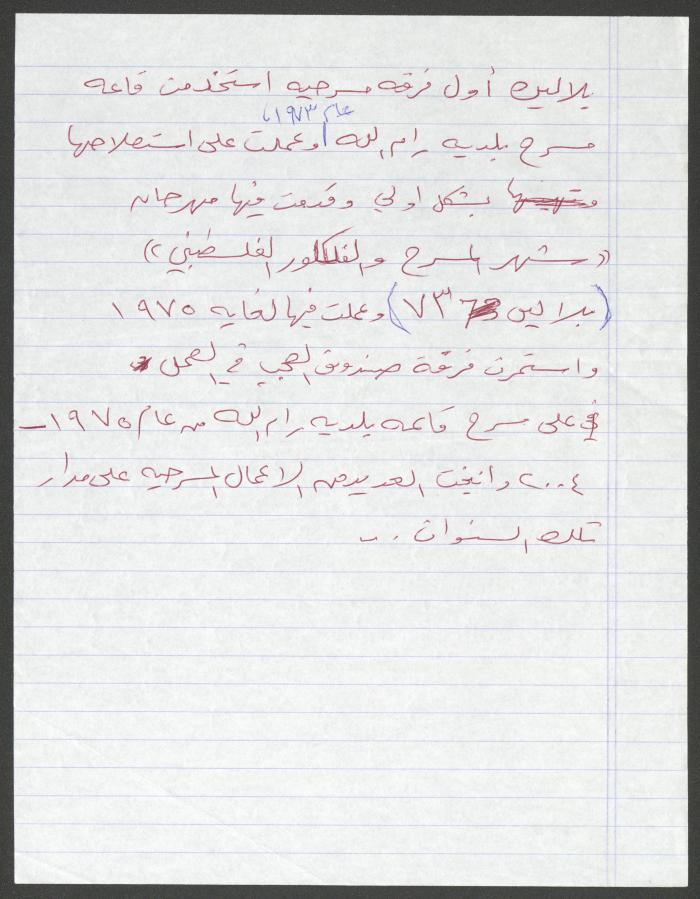 بلالين أول فرقه مسرحيه استخدمت قاعه
عام ١٩٧٣،
مسرح بلديه رام الله وعملت على استصلاحها
بشكل اولي وقدمت فيها مهرجان
(( شهر المسرح والفلكلور الفلسطيني ))
(بلالين ٧٣) وعملت فيها لغايه ١٩٧٥
واستمرت فرقة صندوق العجب في العمل
على مسرح قاعه بلديه رام الله من عام ١٩٧٥ –
٢٠٠٤ وانتجت العديد من الاعمال المسرحيه على مدار
تلك السنوات ...